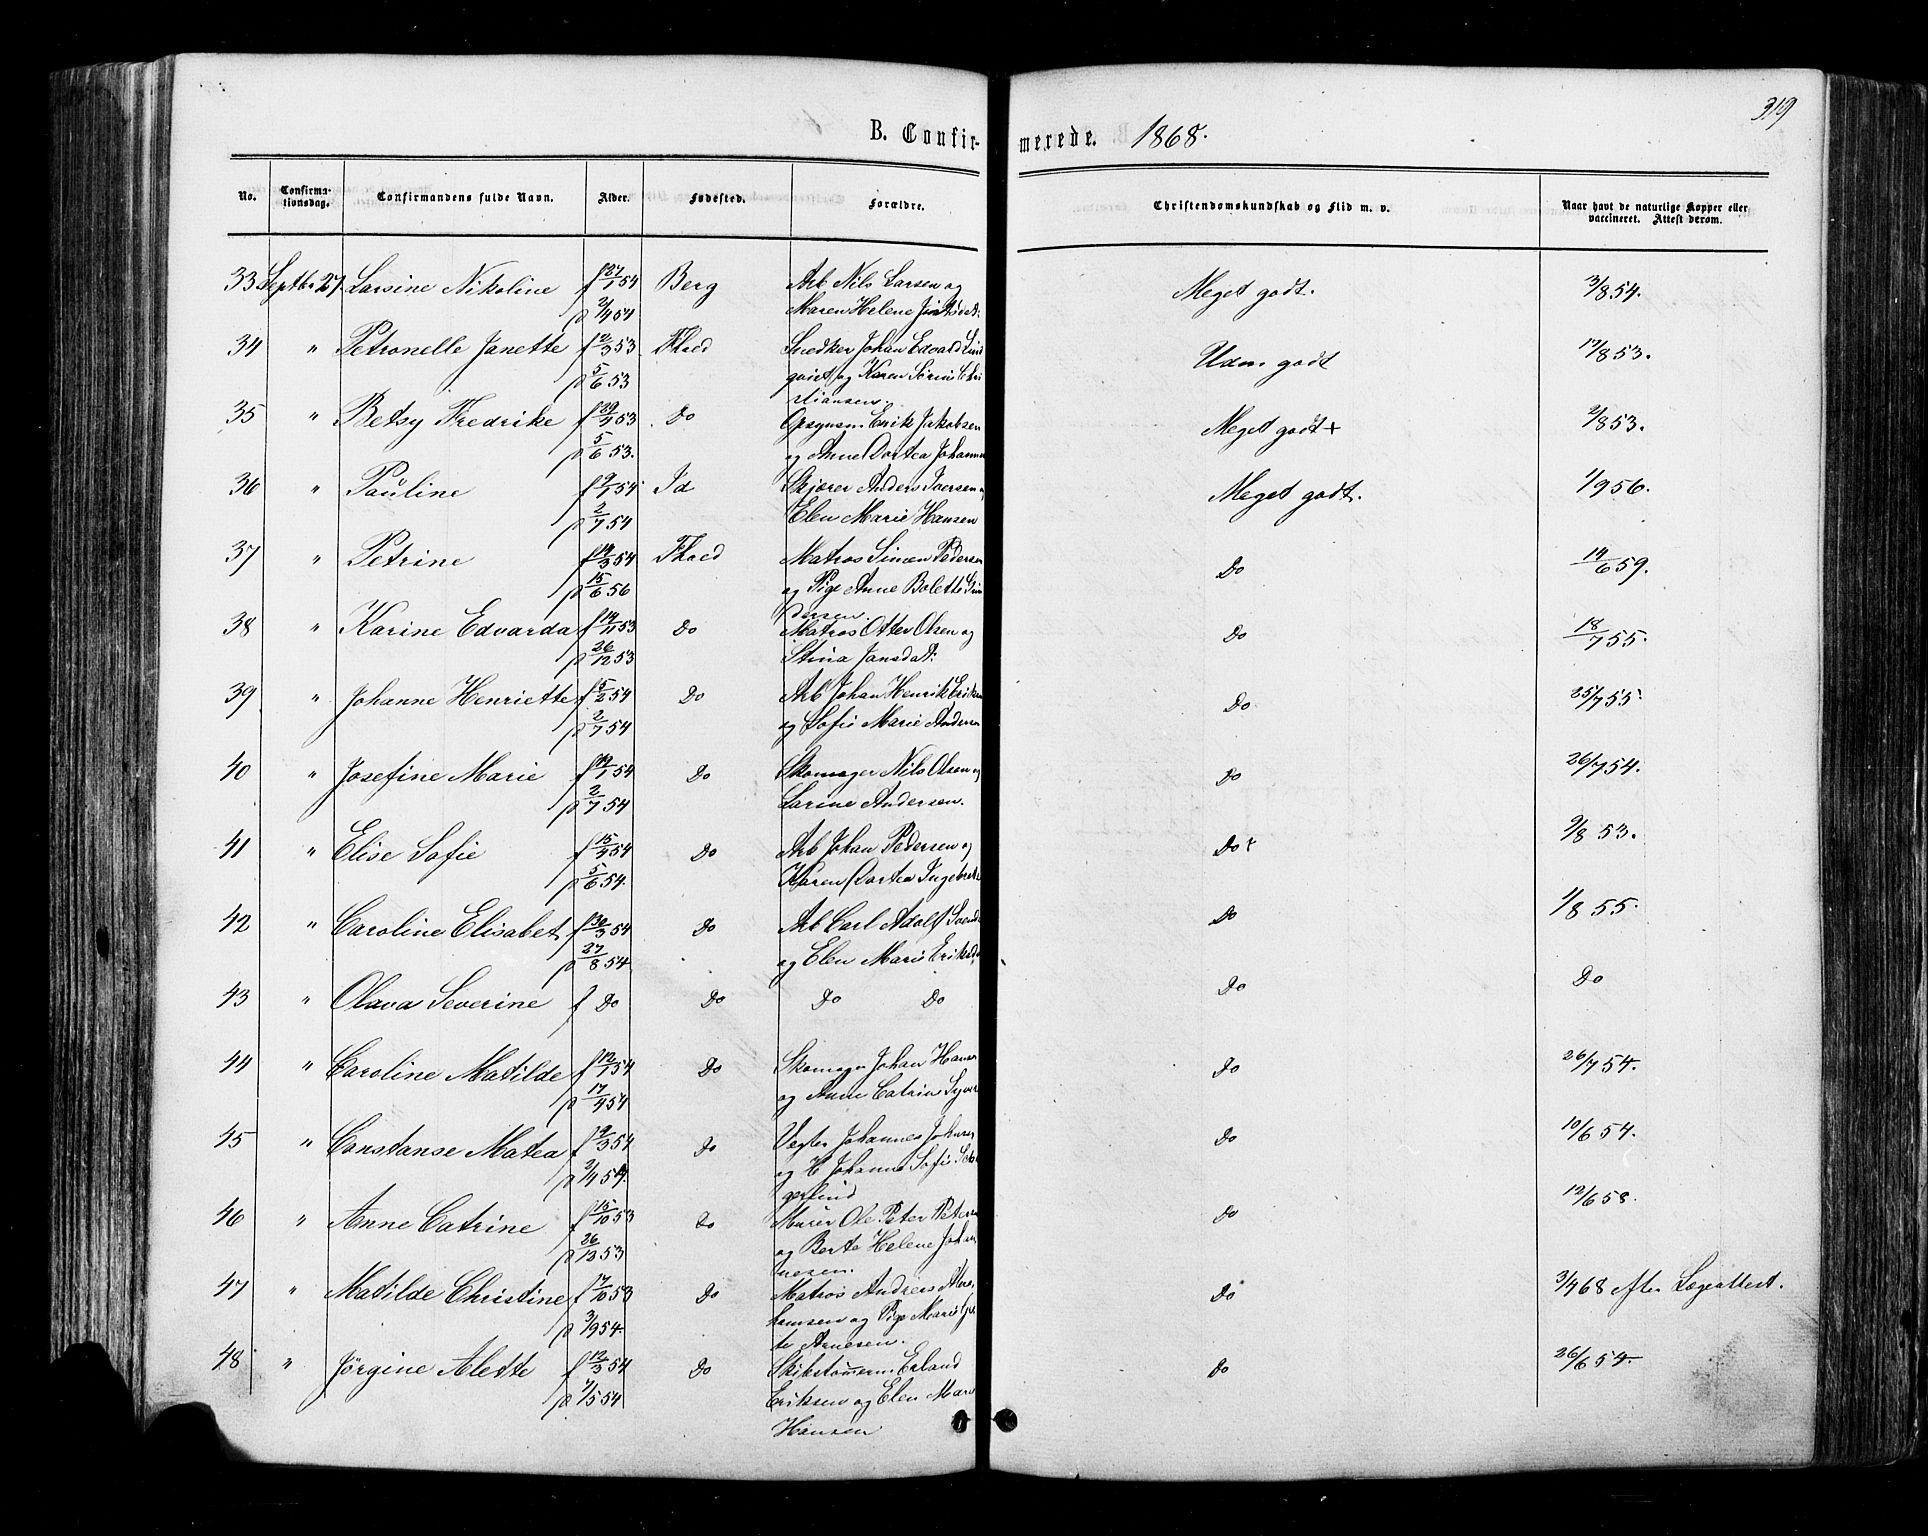 319
B. Confirmerede. 1868.
No. Confirmationsdag. Confirmandens fulde Navn. Alder. Fødested. Forældre. Christendomskundskab og Flid m. v. Naar havt de naturlige Kopper eller vaccineret. Attest derom.
33 Septbr 27. Larsine Nikoline f 27/1 54 Berg Arb Nils Larsen og Meget godt. 3/8 54.
p 2/4 54 Maren Helene
34 " Petronelle Janette f 2/3 53 Fhald Snedker Johan Edvald Lind Udm godt 17/8 53.
p 5/6 53 qvist og Karen Sørine Chri
stiansen.
35 " Betsy Fredrike f 29/4 53 Do Opsynsm. Erik Jakobsen Meget godt + 2/8 53.
p 5/6 53. og Anne Dortea Johanne
36 " Pauline f 9/1 54 Id Skjører Anders Iversen og Meget godt. 1/9 56.
p 2/7 54 Elen Marie Hansen
37 " Petrine f 14/3 54 Fhald Matros Simen Pedersen Do 14/6 59.
p 15/6 56 og Pige Anne Bolette
dersen.
38 " Karine Edvarda f 14/11 53 Do Matros Otter Olsen og Do 18/7 55.
p 26/12 53 Stina Jansdat:
39 " Johanne Henriette f 5/2 54 Do Arb Johan Henrik Eriksen Do 25/7 55
p 2/7 54 og Sofie Marie Andersen
40 " Josefine Marie f 14/1 54 Do Skomager Nils Olsen og Do 26/7 54.
p 2/7 54 Larine Andersen.
41 " Elise Sofie f 15/4 54 Do Arb Johan Pedersen og Do + 9/8 53.
p 5/6 54. Karen Dortea Ingebrets
42 " Caroline Elisabet f 30/3 54 Do Arb Carl Adolf Svends Do 1/8 55.
p 27/8 54. og Elen Marie Eriksd
43 " Olava Severine f Do Do Do Do Do Do
44 " Caroline Matilde f 12/1 54 Do Skomager Johan Hansen Do 26/7 54.
p 17/4 54 og Anne Catrine Syver
45 " Constanse Matea f 9/3 54 Do Vegter Johannes Johnsen Do 10/6 54.
p 2/4 54. og H Johanne Sofie
gerlund
46 " Anne Catrine f 15/10 53 Do Murer Ole Peter Peters Do 12/6 58.
p 26/12 53 og Berte Helene Johan
nesen.
47 " Matilde Christine f 7/10 53 Do Matros Andreas Abra Do 3/4 68 efter Lægeattest.
p 3/9 54. hamsen og Pige Marie
te Arnesen.
48 " Jørgine Alette f 12/3 54 Do Skibstømrm. Erland Do 26/6 54.
p 7/5 54 Eriksen og Elen Mari
Hansen